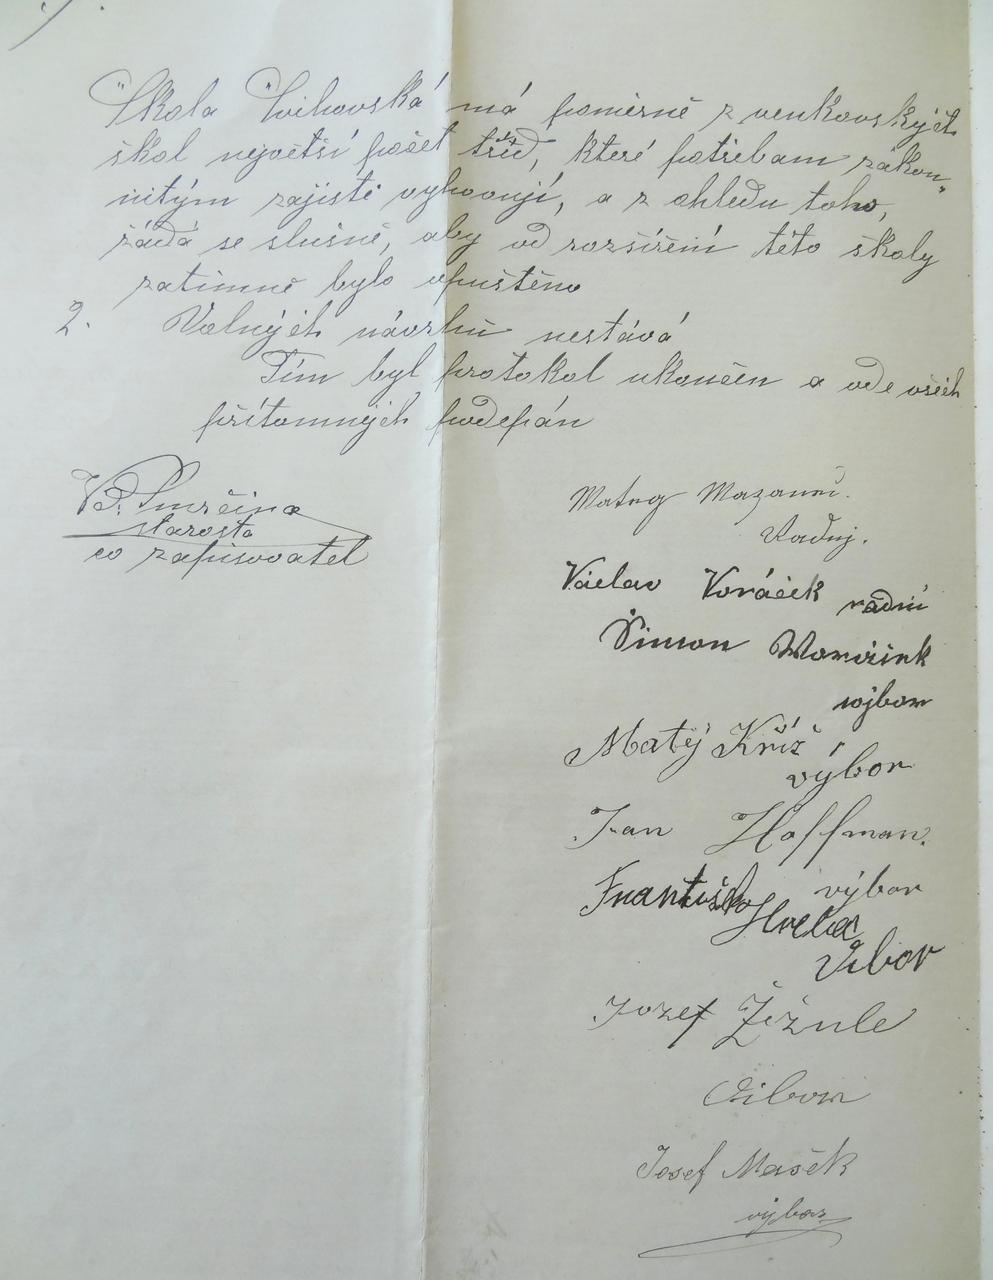 Škola Švihovská má poměrně z venkovskýčh
škol nejvetší počet tříd, které potřebam zákon„
nitým zajisté vyhovují, a z ohledu toho,
žádá se slušně, aby od rozšíření této školy
zatímně bylo upuštěno
2. Volnýčh návrhů nestává
Tím byl protokol ukončen a ode všéch
přítomnýčh podepán
Smrčina
starosta
co zapisovatel
Matej Mazanec.
Radnj.
Václav Voráček radní
Šimon Woráček
wýbor
Matěj Kříž
výbor
Jan Hoffman.
výbor
František Hrcha
Vibor
Jozef Žižnle
Vibor
Josef Mašek
výbor